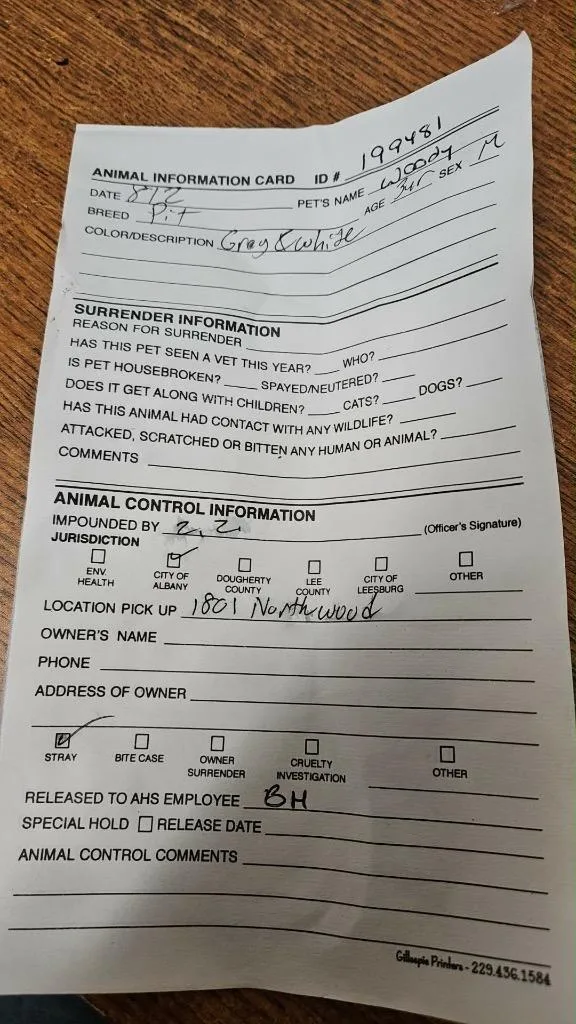 ANIMAL INFORMATION CARD ID # 199481
DATE 8/2 PET'S NAME Woody
BREED Pit AGE 3yr SEX M
COLOR/DESCRIPTION Gray & white
SURRENDER INFORMATION
REASON FOR SURRENDER
HAS THIS PET SEEN A VET THIS YEAR? WHO?
IS PET HOUSEBROKEN? SPAYED/NEUTERED?
DOES IT GET ALONG WITH CHILDREN? CATS? DOGS?
HAS THIS ANIMAL HAD CONTACT WITH ANY WILDLIFE?
ATTACKED, SCRATCHED OR BITTEN ANY HUMAN OR ANIMAL?
COMMENTS
ANIMAL CONTROL INFORMATION
IMPOUNDED BY (Officer's Signature)
JURISDICTION
ENV. HEALTH CITY OF ALBANY DOUGHERTY COUNTY LEE COUNTY CITY OF LEESBURG OTHER
LOCATION PICK UP 1801 Northwood
OWNER'S NAME
PHONE
ADDRESS OF OWNER
STRAY BITE CASE OWNER SURRENDER CRUELTY INVESTIGATION OTHER
RELEASED TO AHS EMPLOYEE BH
SPECIAL HOLD RELEASE DATE
ANIMAL CONTROL COMMENTS
Gillespie Printers - 229.436.1584